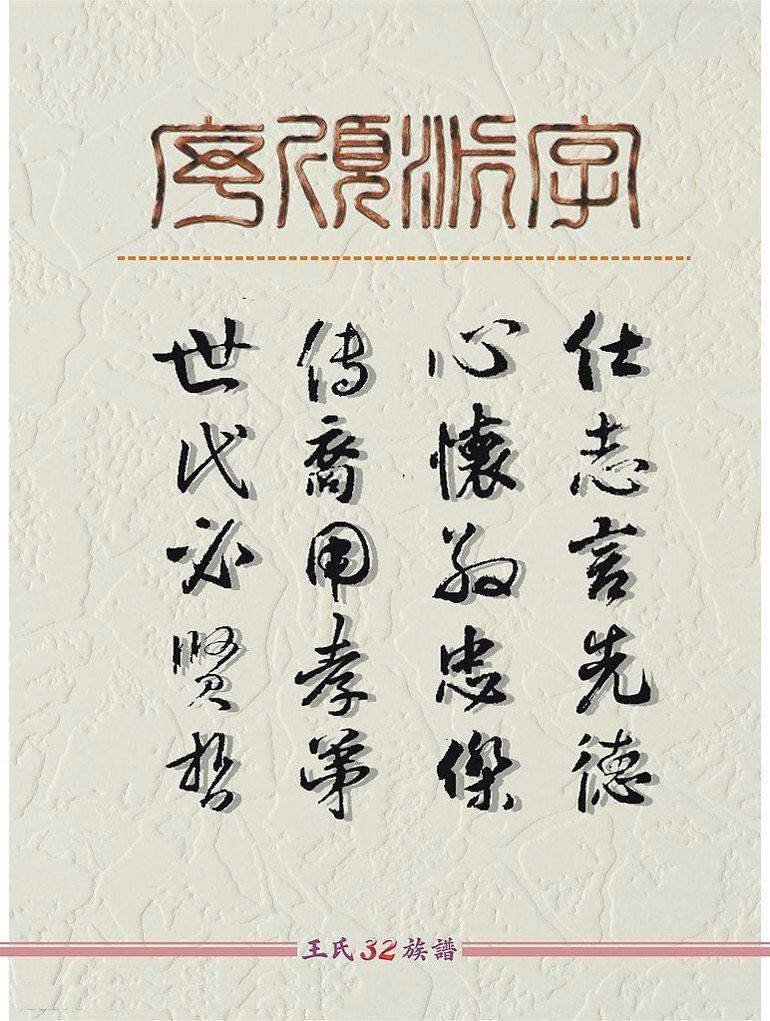 字派順序
仕志言先德
心懷忠傑
傳裔用孝第
世代必賢哲
王氏32族譜